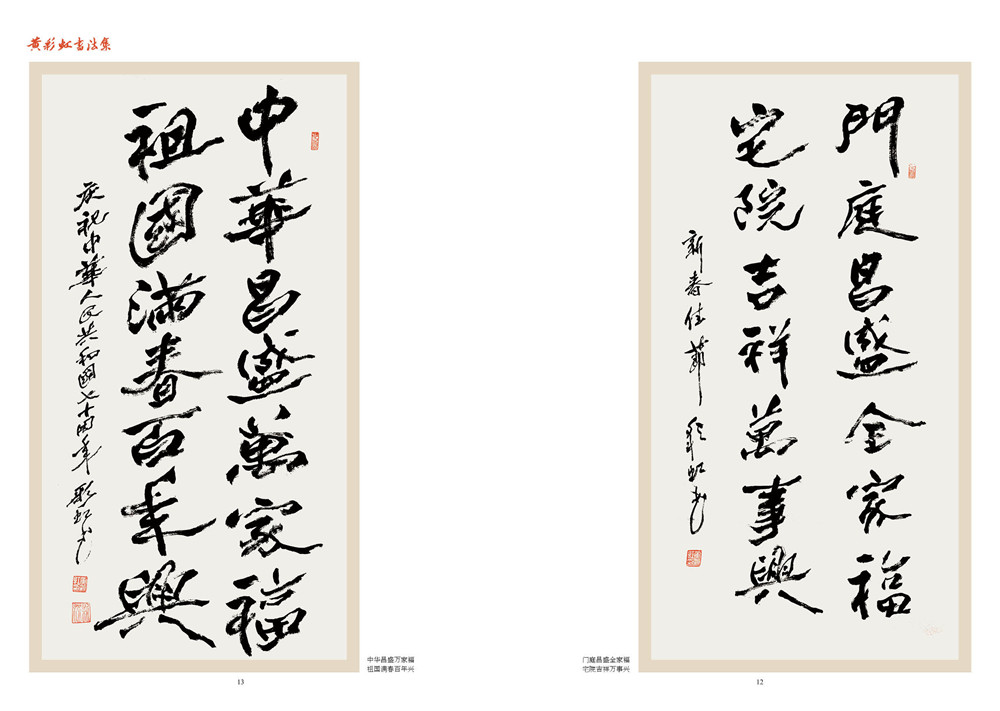 黄彩虹书法集
門庭昌盛全家福
宅院吉祥萬事興
新春佳節 彩虹书
门庭昌盛全家福
宅院吉祥万事兴
12
中華昌盛萬家福
祖國满春百年興
庆祝中華人民共和國七十周年 彩虹书
中华昌盛万家福
祖国满春百年兴
13